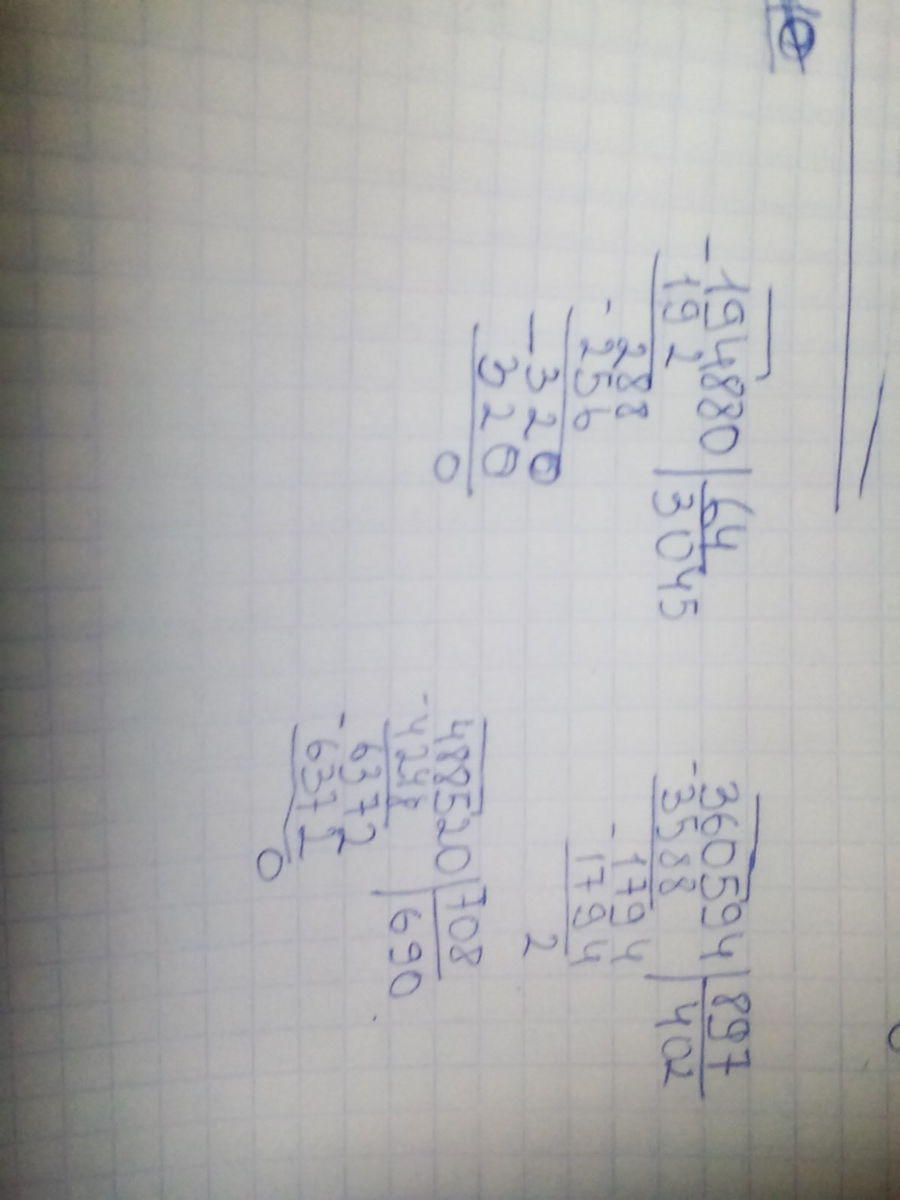 -194880 | 64
192 | 3045
288
- 256
-320
320
0
360594 | 897
-3588 | 402
1794
- 1794
2
48520 | 708
-4248 | 690
6372
-6372
0